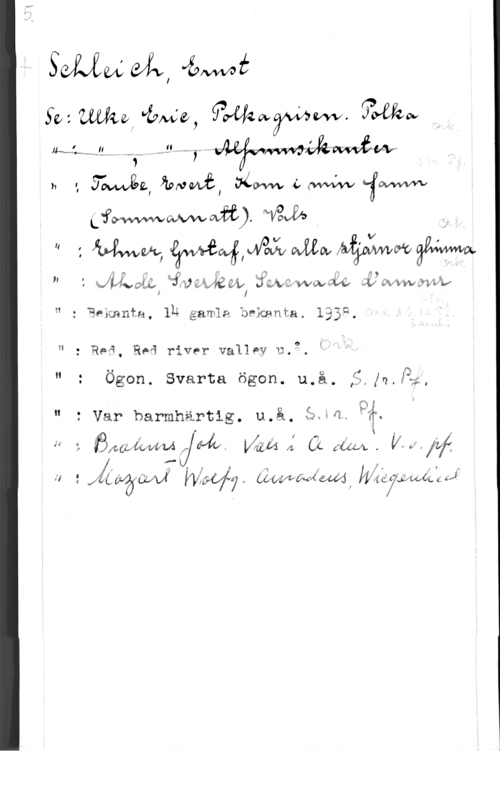 5.
Schleich, Ernst
Se: Uhlke, Eric, Polkagrisen. Polka Ork.
" " ; " , Alpmusikanter
S. In. Pf.
" : Taube, Evert, Kom i min famn
(Sommarnatt). Vals Ork.
" : Ehmer, Gustaf, När alla stjärnor glimma
Ork.
" : Ahde, Sverker, Serenade d'amour
" : Bekanta, 14 gamla bekanta. 1938.
" : Red, Red river valley u.å. Ork.
" : Ögon. Svarta ögon. u.å. S. In. Pf.
" : Var barmhärtig. u.å. S. in. Pf.
" : Brahms Joh. Vals i A dur. V. o. pf.
" : Mozart Wolfg. Amadeus, Wiegenlied